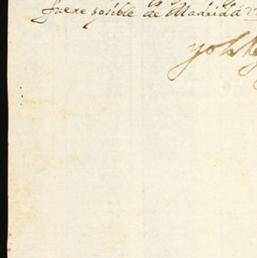 fuere posible de Madrid a 2
yo el Re